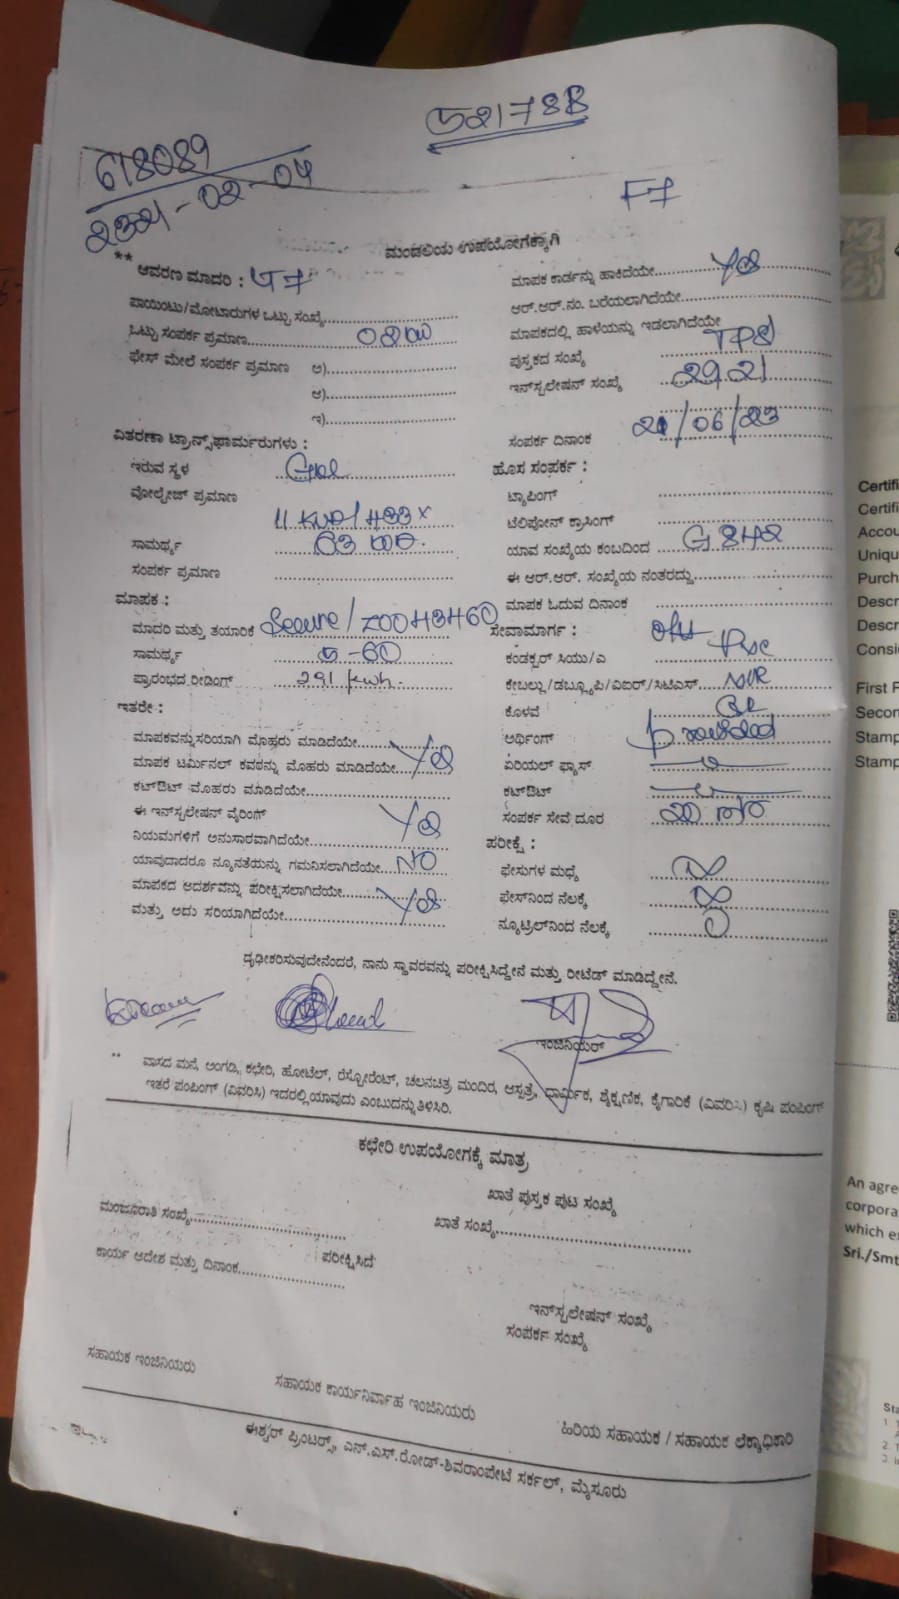 52178B
618089
F7
ಮಂಡಲಿಯ ಉಪಯೋಗಕ್ಕಾಗಿ
** ಆವರಣ ಮಾದರಿ :
ಪಾಯಿಂಟು/ಮೋಟಾರುಗಳ ಒಟ್ಟು ಸಂಖ್ಯೆ
ಒಟ್ಟು ಸಂಪರ್ಕ ಪ್ರಮಾಣ
ಫೇಸ್ ಮೇಲೆ ಸಂಪರ್ಕ ಪ್ರಮಾಣ ಅ)
ಆ)
ಇ)
ವಿತರಣಾ ಟ್ರಾನ್ಸ್‌ಫಾರ್ಮರುಗಳು :
ಇರುವ ಸ್ಥಳ
ವೋಲ್ಟೇಜ್ ಪ್ರಮಾಣ
ಸಾಮರ್ಥ್ಯ
ಸಂಪರ್ಕ ಪ್ರಮಾಣ
ಮಾಪಕ :
ಮಾದರಿ ಮತ್ತು ತಯಾರಿಕೆ Secure /
ಸಾಮರ್ಥ್ಯ 5-60
ಪ್ರಾರಂಭದ ರೀಡಿಂಗ್ 291 kwh.
ಇತರೇ :
ಮಾಪಕವನ್ನು ಸರಿಯಾಗಿ ಮೊಹರು ಮಾಡಿದೆಯೇ
ಮಾಪಕ ಟರ್ಮಿನಲ್ ಕವಠನ್ನು ಮೊಹರು ಮಾಡಿದೆಯೇ Yes
ಕಟ್‌ಔಟ್ ಮೊಹರು ಮಾಡಿದೆಯೇ
ಈ ಇನ್‌ಸ್ಟಲೇಷನ್ ವೈರಿಂಗ್ Yes
ನಿಯಮಗಳಿಗೆ ಅನುಸಾರವಾಗಿದೆಯೇ
ಯಾವುದಾದರೂ ನ್ಯೂನತೆಯನ್ನು ಗಮನಿಸಲಾಗಿದೆಯೇ NO
ಮಾಪಕದ ಆದರ್ಶವನ್ನು ಪರೀಕ್ಷಿಸಲಾಗಿದೆಯೇ Yes
ಮತ್ತು ಅದು ಸರಿಯಾಗಿದೆಯೇ
ಮಾಪಕ ಕಾರ್ಡನ್ನು ಹಾಕಿದೆಯೇ Yes
ಆರ್.ಆರ್.ನಂ. ಬರೆಯಲಾಗಿದೆಯೇ
ಮಾಪಕದಲ್ಲಿ ಹಾಳೆಯನ್ನು ಇಡಲಾಗಿದೆಯೇ
ಪುಸ್ತಕದ ಸಂಖ್ಯೆ
ಇನ್‌ಸ್ಟಲೇಷನ್ ಸಂಖ್ಯೆ 2921
ಸಂಪರ್ಕ ದಿನಾಂಕ 21/06/23
ಹೊಸ ಸಂಪರ್ಕ :
ಟ್ಯಾಪಿಂಗ್
ಟೆಲಿಫೋನ್ ಕ್ರಾಸಿಂಗ್
ಯಾವ ಸಂಖ್ಯೆಯ ಕಂಬದಿಂದ
ಈ ಆರ್.ಆರ್. ಸಂಖ್ಯೆಯ ನಂತರದ್ದು
ಮಾಪಕ ಓದುವ ದಿನಾಂಕ
ಸೇವಾಮಾರ್ಗ :
ಕಂಡಕ್ಟರ್ ಸಿಯು/ಎ
ಕೇಬಲ್ಲು/ಡಬ್ಲ್ಯೂಪಿ/ವಿಐಆರ್/ಸಿಟಿಎಸ್
ಕೊಳವೆ
ಅರ್ಥಿಂಗ್ provided
ಏರಿಯಲ್ ಫ್ಯೂಸ್
ಕಟ್‌ಔಟ್
ಸಂಪರ್ಕ ಸೇವೆ ದೂರ
ಪರೀಕ್ಷೆ :
ಫೇಸುಗಳ ಮಧ್ಯೆ
ಫೇಸ್‌ನಿಂದ ನೆಲಕ್ಕೆ
ನ್ಯೂಟ್ರಲ್‌ನಿಂದ ನೆಲಕ್ಕೆ
ದೃಢೀಕರಿಸುವುದೇನೆಂದರೆ, ನಾನು ಸ್ಥಾವರವನ್ನು ಪರೀಕ್ಷಿಸಿದ್ದೇನೆ ಮತ್ತು ರೀಟೆಡ್ ಮಾಡಿದ್ದೇನೆ.
ಇಂಜಿನಿಯರ್
** ವಾಸದ ಮನೆ, ಅಂಗಡಿ, ಕಛೇರಿ, ಹೋಟೆಲ್, ರೆಸ್ಟೋರೆಂಟ್, ಚಲನಚಿತ್ರ ಮಂದಿರ, ಆಸ್ಪತ್ರೆ, ಧಾರ್ಮಿಕ, ಶೈಕ್ಷಣಿಕ, ಕೈಗಾರಿಕೆ (ವಿವರಿಸಿ) ಕೃಷಿ ಪಂಪಿಂಗ್
ಇತರೆ ಪಂಪಿಂಗ್ (ವಿವರಿಸಿ) ಇದರಲ್ಲಿ ಯಾವುದು ಎಂಬುದನ್ನು ತಿಳಿಸಿರಿ.
ಕಛೇರಿ ಉಪಯೋಗಕ್ಕೆ ಮಾತ್ರ
ಖಾತೆ ಪುಸ್ತಕ ಪುಟ ಸಂಖ್ಯೆ
ಮಂಜೂರಾತಿ ಸಂಖ್ಯೆ
ಖಾತೆ ಸಂಖ್ಯೆ
ಪರೀಕ್ಷಿಸಿದೆ
ಕಾರ್ಯ ಆದೇಶ ಮತ್ತು ದಿನಾಂಕ
ಇನ್‌ಸ್ಟಲೇಷನ್ ಸಂಖ್ಯೆ
ಸಂಪರ್ಕ ಸಂಖ್ಯೆ
ಸಹಾಯಕ ಇಂಜಿನಿಯರು
ಸಹಾಯಕ ಕಾರ್ಯನಿರ್ವಾಹ ಇಂಜಿನಿಯರು
ಹಿರಿಯ ಸಹಾಯಕ / ಸಹಾಯಕ ಲೆಕ್ಕಾಧಿಕಾರಿ
ಈಶ್ವರ್ ಪ್ರಿಂಟರ್ಸ್, ಎನ್.ಎಸ್.ರೋಡ್-ಶಿವರಾಂಪೇಟೆ ಸರ್ಕಲ್, ಮೈಸೂರು
An agre
corpora
which e
Sri./Smt